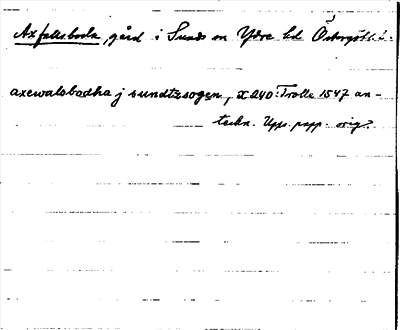 Axfallsboda, gård i Sunds sn Ydre hd Östergötl. l.
axewalsbodha j sundtzsogen, X 240: Trolle 1547 an-
teckn. Upps. papp. orig?